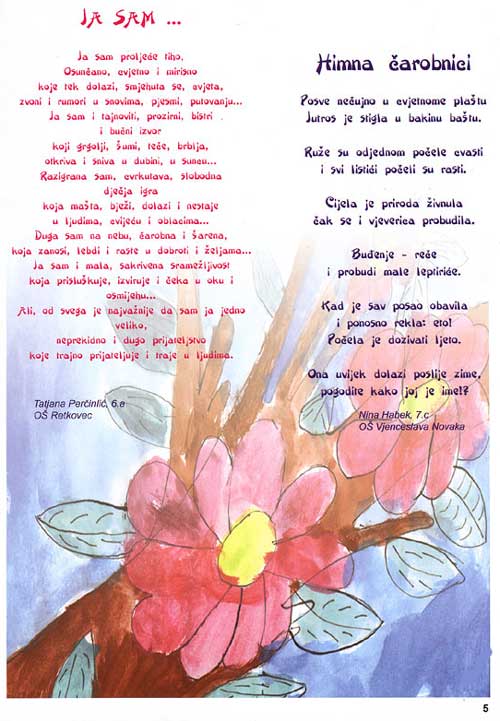 JA SAM ...
Ja sam proljeće tiho,
Osunčano, cvjetno i mirisno
koje tek dolazi, smjehuta se, cvjeta,
zvoni i rumori u snovima, pjesmi, putovanju...
Ja sam i tajnoviti, prozirni, bistri
i bučni izvor
koji grgolji, šumi, teče, brblja,
otkriva i sniva u dubini, u suncu...
Razigrana sam, cvrkutava, slobodna
dječja igra
koja mašta, bježi, dolazi i nestaje
u ljudima, cvijeću i oblacima...
Duga sam na nebu, čarobna i šarena,
koja zanosi, lebdi i raste u dobroti i željama...
Ja sam i mala, sakrivena sramežljivost
koja prisluškuje, izviruje i čeka u oku i
osmijehu...
Ali, od svega je najvažnije da sam ja jedno
veliko,
neprekidno i dugo prijateljstvo
koje trajno prijateljuje i traje u ljudima.
Tatjana Perčinlić, 6.a
OŠ Retkovec
Himna čarobnici
Posve nečujno u cvjetnome plaštu
Jutros je stigla u bakinu baštu.
Ruže su odjednom počele cvasti
i svi listići počeli su rasti.
Cijela je priroda živnula
čak se i vjeverica probudila.
Buđenje - reče
i probudi male leptiriće.
Kad je sav posao obavila
i ponosno rekla: eto!
Počela je dozivati ljeto.
Ona uvijek dolazi poslije zime,
pogodite kako joj je ime!?
Nina Habek, 7.c
OŠ Vjenceslava Novaka
5